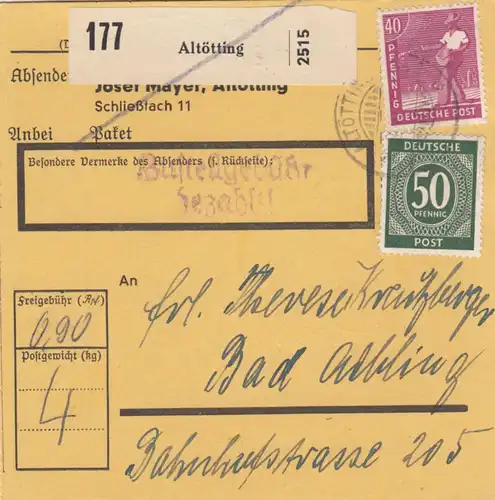 177
Altötting
2515
Absende
Josef Mayer, Altötting
Schließfach 11
Anbei Paket
Besondere Vermerke des Absenders (s. Rückseite):
Zustellgebühr
bezahlt
40
PFENNIG
DEUTSCHE POST
DEUTSCHE
50
PFENNIG
POST
An
Frl. Therese Kreutzberger
Bad Aibling
Bahnhofstrasse 205
Freigebühr (RM)
0,90
Postgewicht (kg)
4